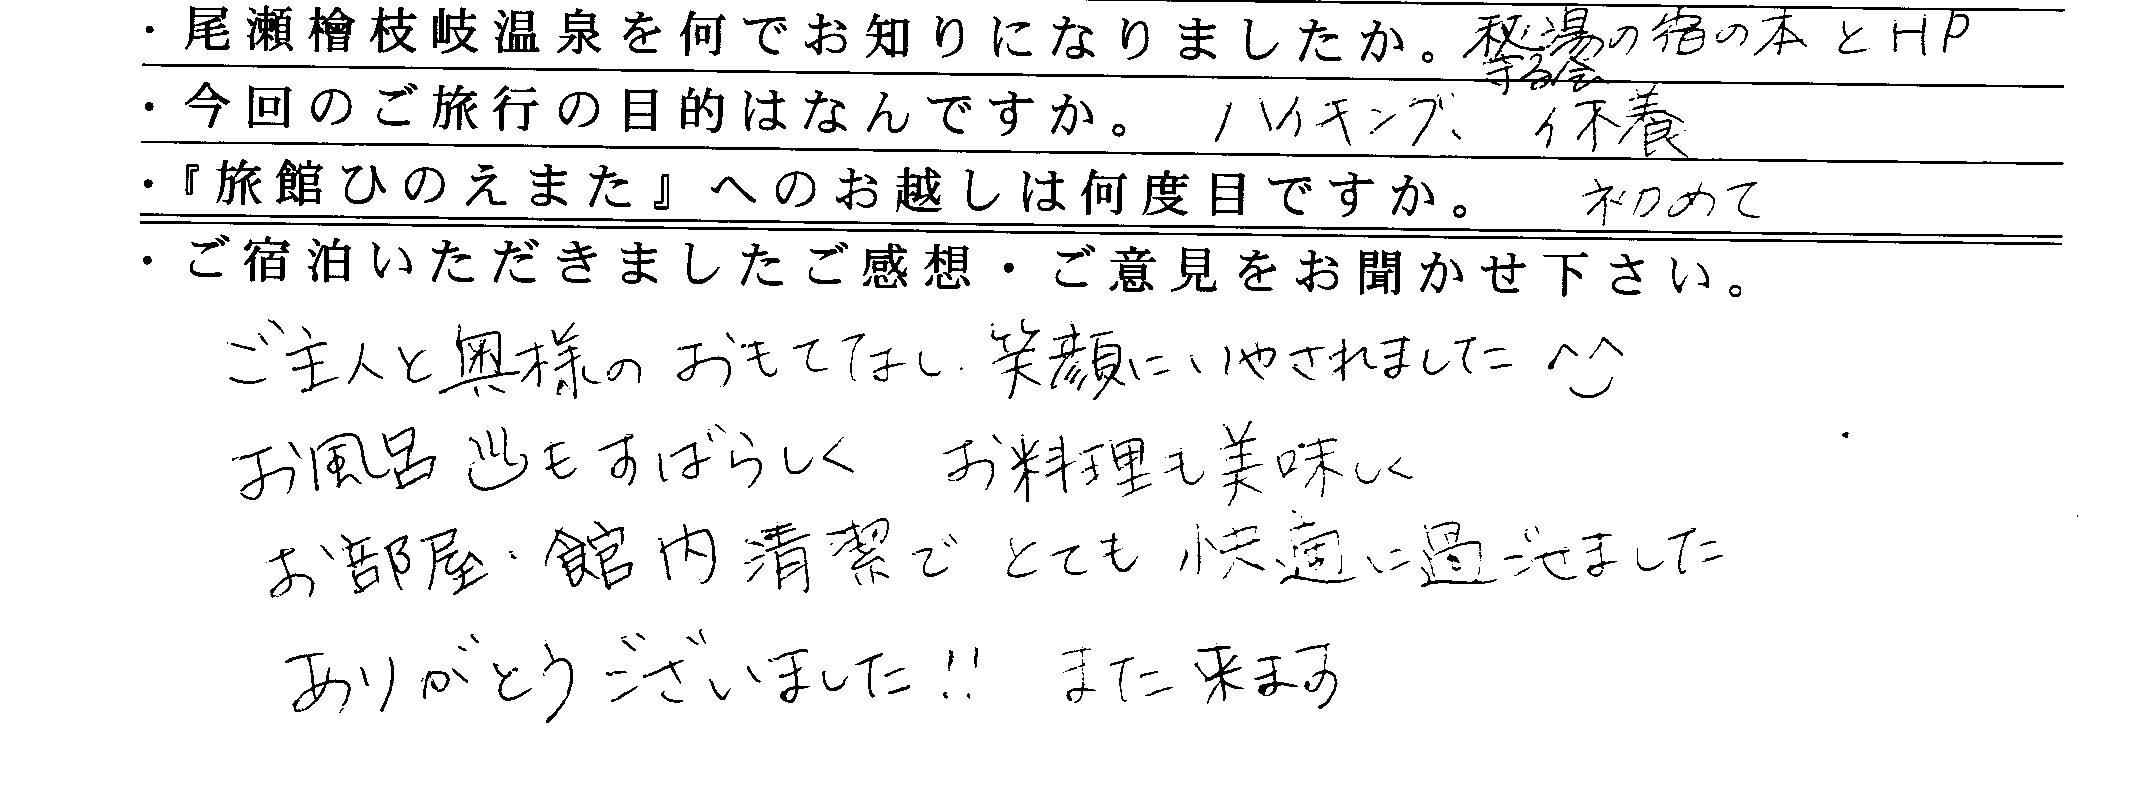 ・尾瀬檜枝岐温泉を何でお知りになりましたか。秘湯の宿の本とHP
守る会
・今回のご旅行の目的はなんですか。 ハイキング、休養
・『旅館ひのえまた』へのお越しは何度目ですか。 初めて
・ご宿泊いただきましたご感想・ご意見をお聞かせ下さい。
ご主人と奥様のおもてなし、笑顔にいやされました^^
お風呂♨もすばらしく お料理も美味しく
お部屋・館内清潔でとても快適に過ごせました
ありがとうございました!! また来ます